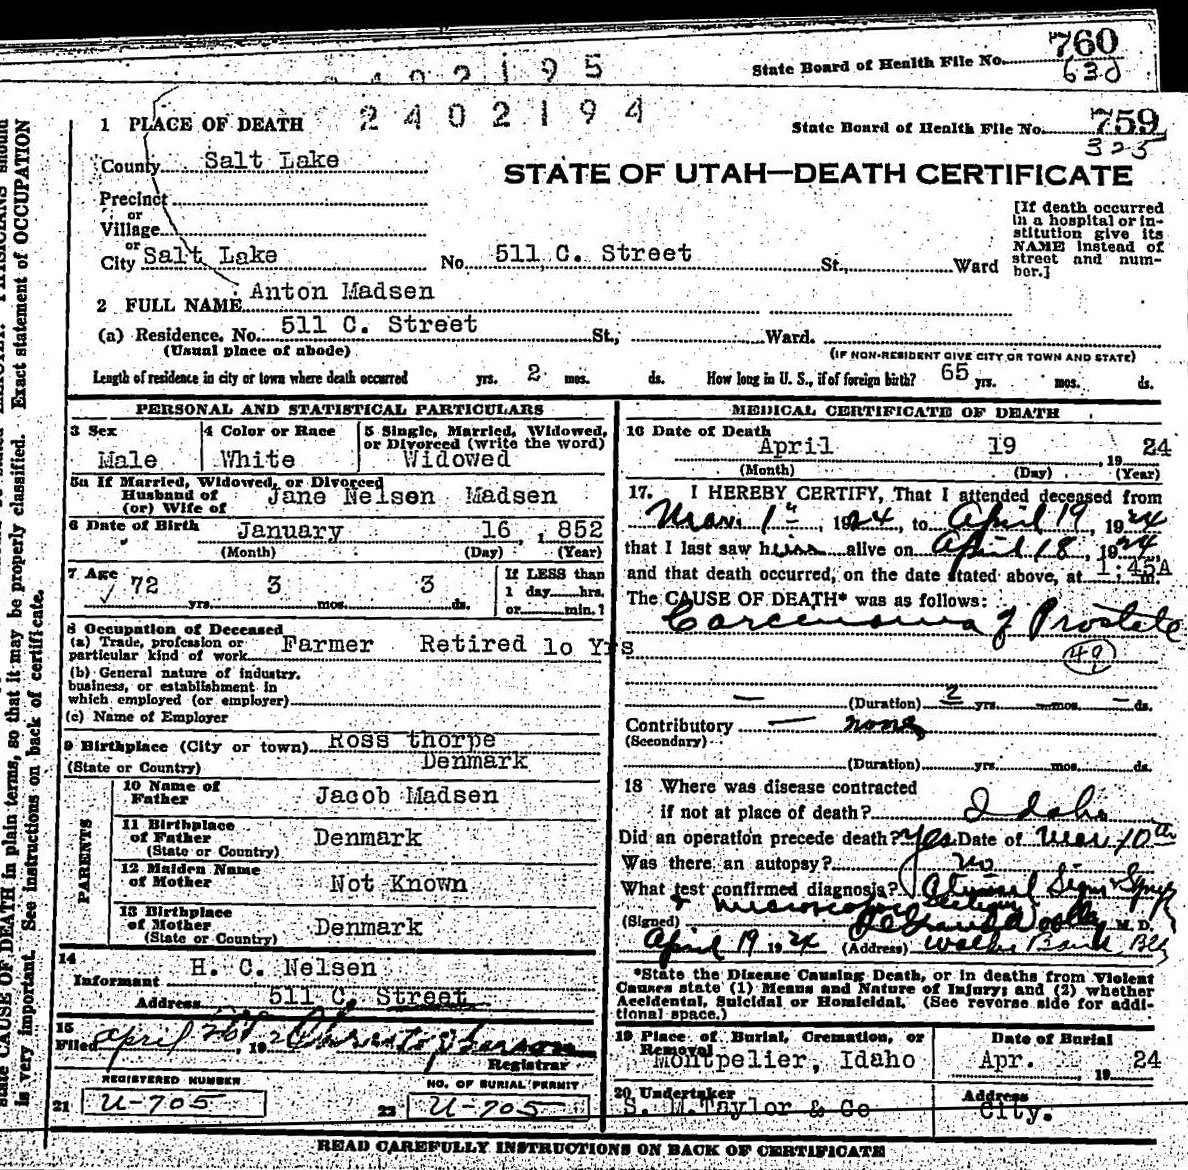 2402195
State Board of Health File No. 760
630
1 PLACE OF DEATH 2402194
State Board of Health File No. 759
325
County Salt Lake
STATE OF UTAH—DEATH CERTIFICATE
Precinct
or
Village
or
City Salt Lake No. 511 C. Street St., Ward
[If death occurred
in a hospital or in-
stitution give its
NAME instead of
street and num-
ber.]
2 FULL NAME Anton Madsen
(a) Residence. No. 511 C. Street St., Ward.
(Usual place of abode) (IF NON-RESIDENT GIVE CITY OR TOWN AND STATE)
Length of residence in city or town where death occurred yrs. 2 mos. ds. How long in U. S., if of foreign birth? 65 yrs. mos. ds.
PERSONAL AND STATISTICAL PARTICULARS
3 Sex Male
4 Color or Race White
5 Single, Married, Widowed,
or Divorced (write the word)
Widowed
5a If Married, Widowed, or Divorced
Husband of
(or) Wife of
Jane Nelsen Madsen
6 Date of Birth January 16, 1852
(Month) (Day) (Year)
7 Age 72 yrs. 3 mos. 3 ds.
If LESS than
1 day hrs.
or min.?
8 Occupation of Deceased
(a) Trade, profession or
particular kind of work Farmer Retired lo Yrs
(b) General nature of industry,
business, or establishment in
which employed (or employer)
(c) Name of Employer
9 Birthplace (City or town) Ross thorpe
(State or Country) Denmark
PARENTS
10 Name of
Father Jacob Madsen
11 Birthplace
of Father Denmark
(State or Country)
12 Maiden Name
of Mother Not Known
13 Birthplace
of Mother Denmark
(State or Country)
14
Informant H. C. Nelsen
Address 511 C. Street
15
Filed April
Registrar
REGISTERED NUMBER
21 U-705
NO. OF BURIAL PERMIT
22 U-705
MEDICAL CERTIFICATE OF DEATH
16 Date of Death
April 19, 1924
(Month) (Day) (Year)
17. I HEREBY CERTIFY, That I attended deceased from
Mar. 1st, 1924, to April 19 1924
that I last saw him alive on April 18, 1924,
and that death occurred, on the date stated above, at 1:45A m.
The CAUSE OF DEATH* was as follows:
Carcenoma of Prostate
49
— (Duration) 2 yrs. — mos. — ds.
Contributory — none
(Secondary)
(Duration) yrs. mos. ds.
18 Where was disease contracted
if not at place of death? Idaho
Did an operation precede death? Yes Date of Mar. 10th
Was there an autopsy? no
What test confirmed diagnosis?
& microscopic sections
(Signed) M. D.
April 19 1924 (Address) Walker Bank Bldg
*State the Disease Causing Death, or in deaths from Violent
Causes state (1) Means and Nature of Injury; and (2) whether
Accidental, Suicidal or Homicidal. (See reverse side for addi-
tional space.)
19 Place of Burial, Cremation, or
Removal
Montpelier, Idaho
Date of Burial
Apr. 1924
20 Undertaker
S. M. Taylor & Co
Address
City.
READ CAREFULLY INSTRUCTIONS ON BACK OF CERTIFICATE
state CAUSE OF DEATH in plain terms, so that it may be properly classified. Exact statement of OCCUPATION
is very important. See instructions on back of certificate.